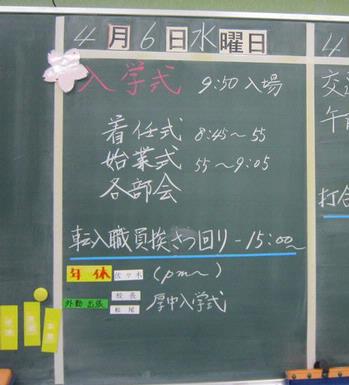 4月6日水曜日
入学式 9:50入場
着任式 8:45〜55
始業式 55〜9:05
各部会
転入職員挨さつ回り-15:00〜
年休 佐々木 (pm〜)
外勤 出張 校長 松尾 厚中入学式
4
交
午前
打合